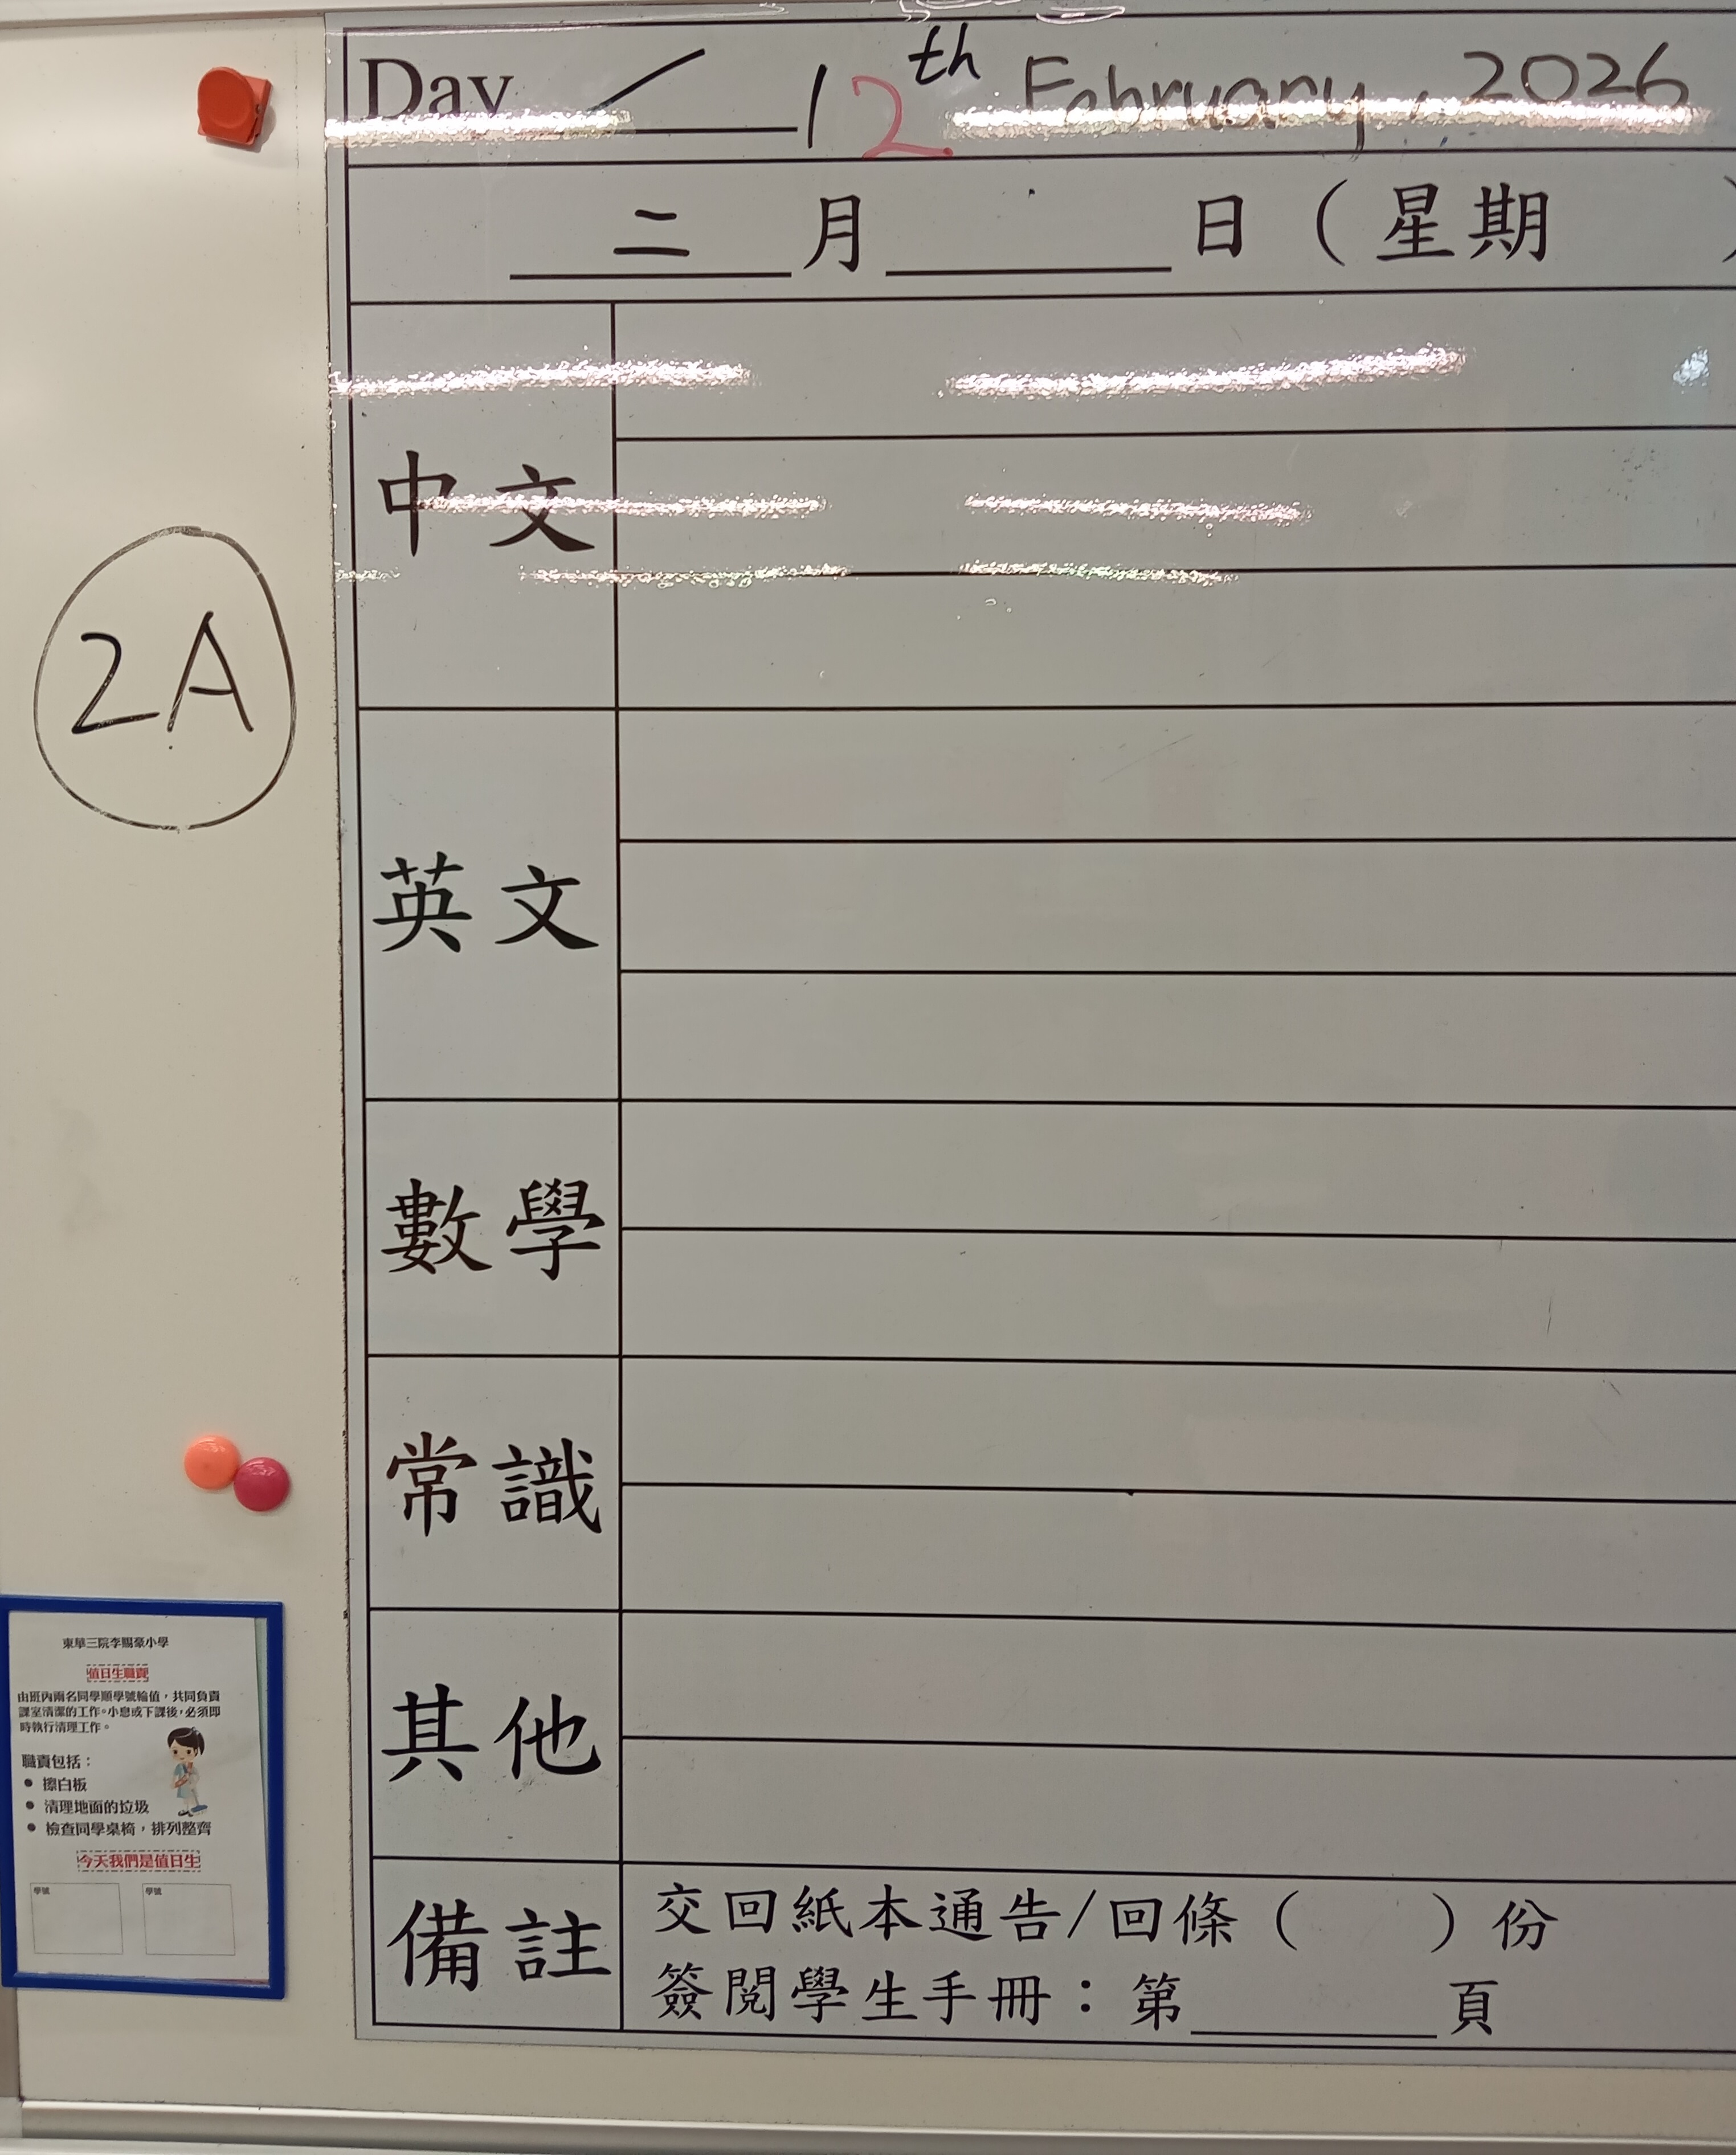 Day / 12th February, 2026
二 月 日 ( 星期 )
中文
2A
英文
數學
常識
其他
備註
交回紙本通告/回條 ( ) 份
簽閱學生手冊：第 頁
東華三院李賜豪小學
值日生職責
由班內兩名同學順學號輪值，共同負責
課室清潔的工作。小息或下課後，必須即
時執行清理工作。
職責包括：
● 擦白板
● 清理地面的垃圾
● 檢查同學桌椅，排列整齊
今天我們是值日生
學號 學號